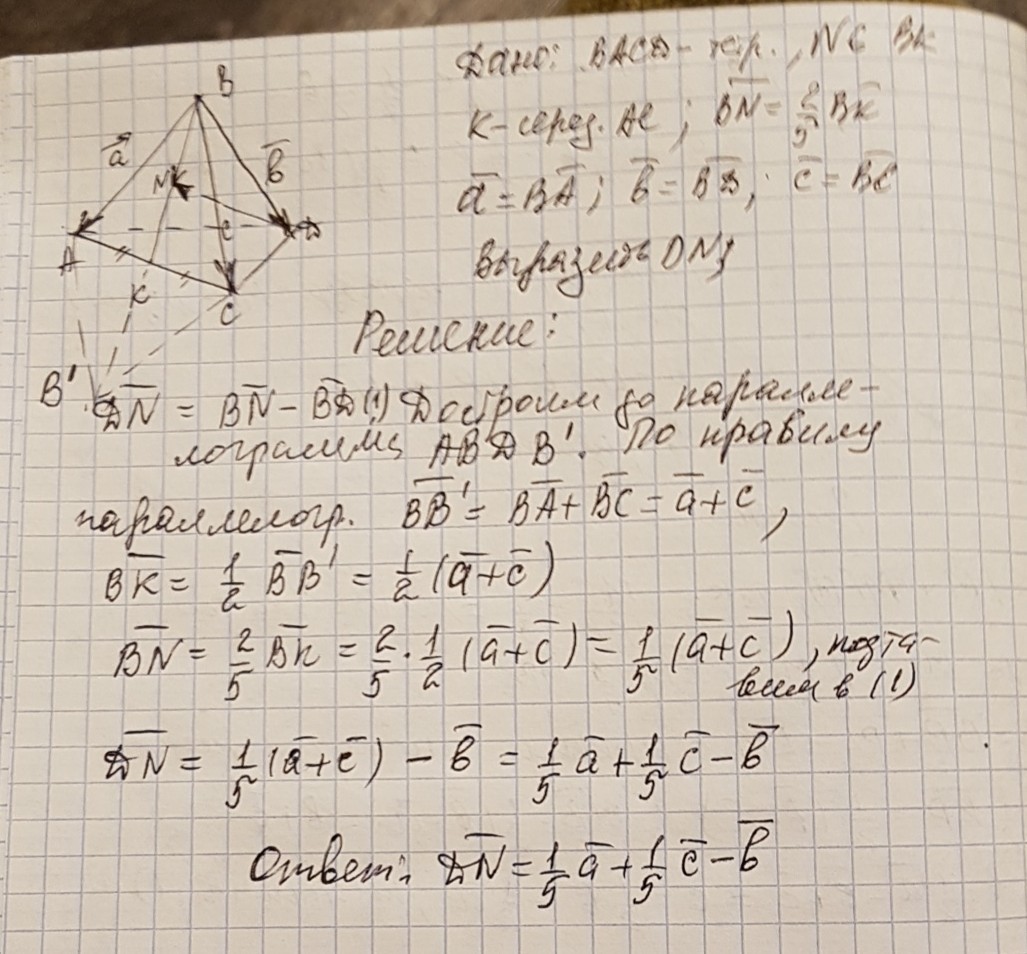 Дано: BACD - тетр., N ∈ BK
K - серед. AC; B̅N̅ = 2/5 B̅K̅
a̅ = B̅A̅; b̅ = B̅D̅; c̅ = B̅C̅
Выразить DN
B
a̅
b̅
N
A
c̅
D
K
C
B'
Решение:
D̅N̅ = B̅N̅ - B̅D̅ (1) Достроим до паралле-
лограмма ABDB'. По правилу
параллелогр. B̅B̅' = B̅A̅ + B̅C̅ = a̅ + c̅,
B̅K̅ = 1/2 B̅B̅' = 1/2 (a̅ + c̅)
B̅N̅ = 2/5 B̅K̅ = 2/5 · 1/2 (a̅ + c̅) = 1/5 (a̅ + c̅), подста-
вим в (1)
D̅N̅ = 1/5 (a̅ + c̅) - b̅ = 1/5 a̅ + 1/5 c̅ - b̅
Ответ: D̅N̅ = 1/5 a̅ + 1/5 c̅ - b̅